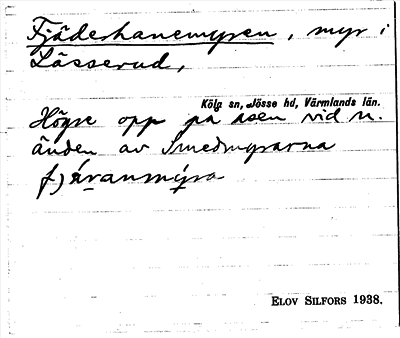 Fjäderhanemyren, myr i
Lässerud,
Köla sn, Jösse hd, Värmlands län.
Högre opp på åsen vid n.
änden av Smedmyrarna
Elov Silfors 1938.